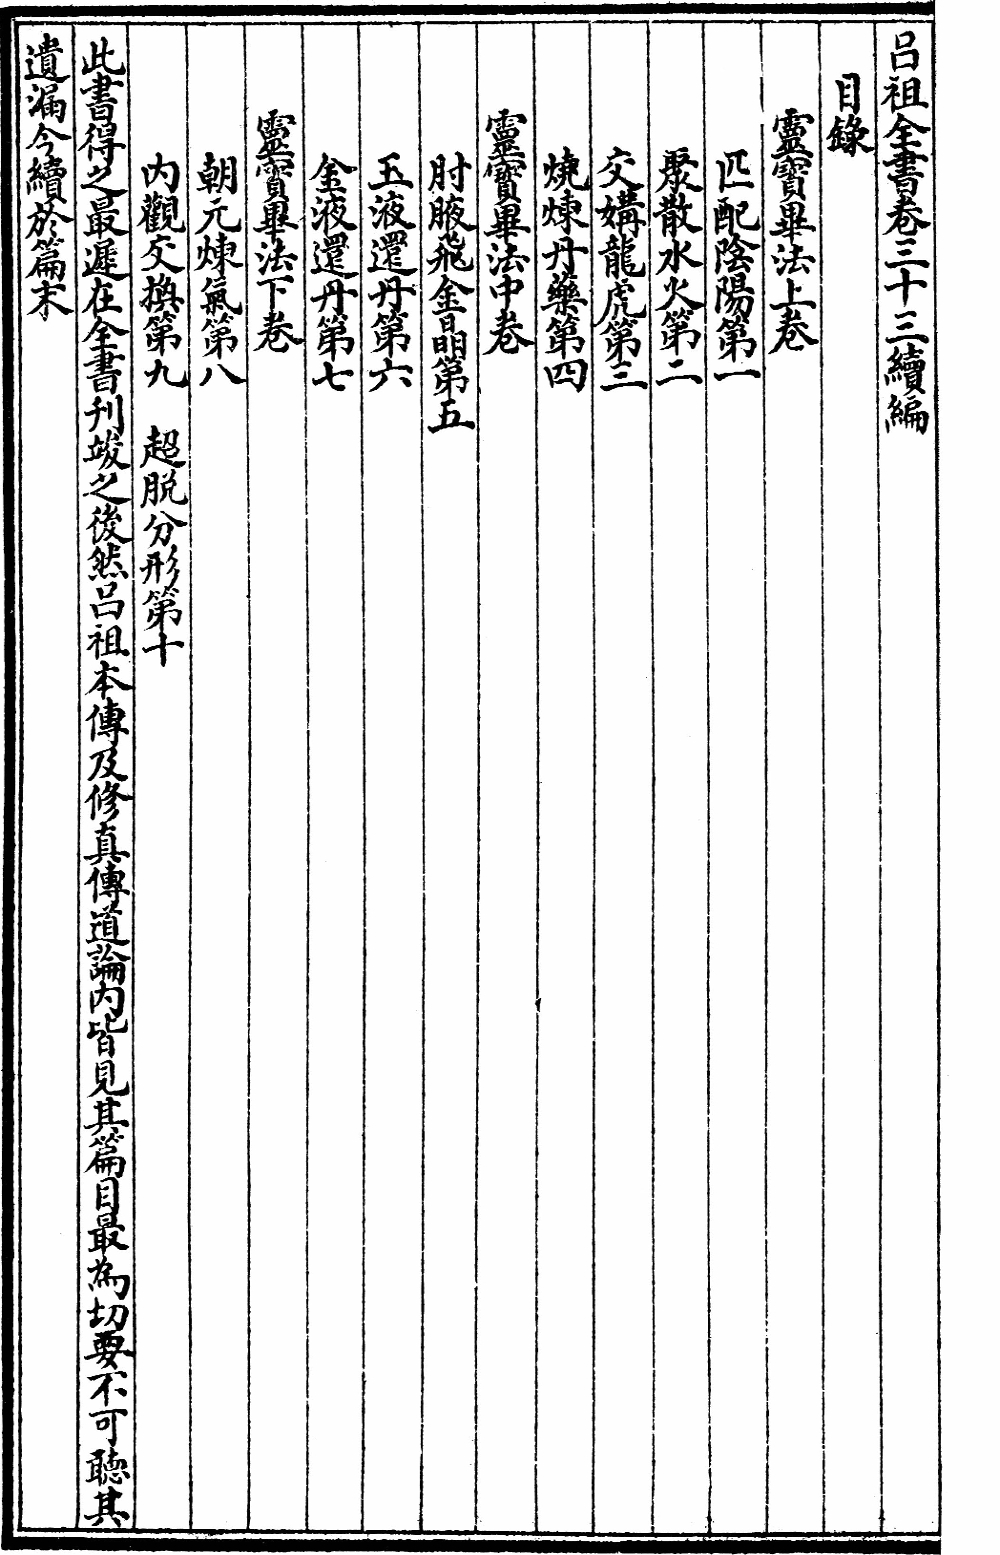 呂祖全書卷三十三續編
目錄
靈寶畢法上卷
匹配陰陽第一
聚散水火第二
交媾龍虎第三
燒煉丹藥第四
靈寶畢法中卷
肘腋飛金晶第五
玉液還丹第六
金液還丹第七
靈寶畢法下卷
朝元煉氣第八
內觀交換第九 超脫分形第十
此書得之最遲在全書刊竣之後然呂祖本傳及修真傳道論內皆見其篇目最為切要不可聽其
遺漏今續於篇末